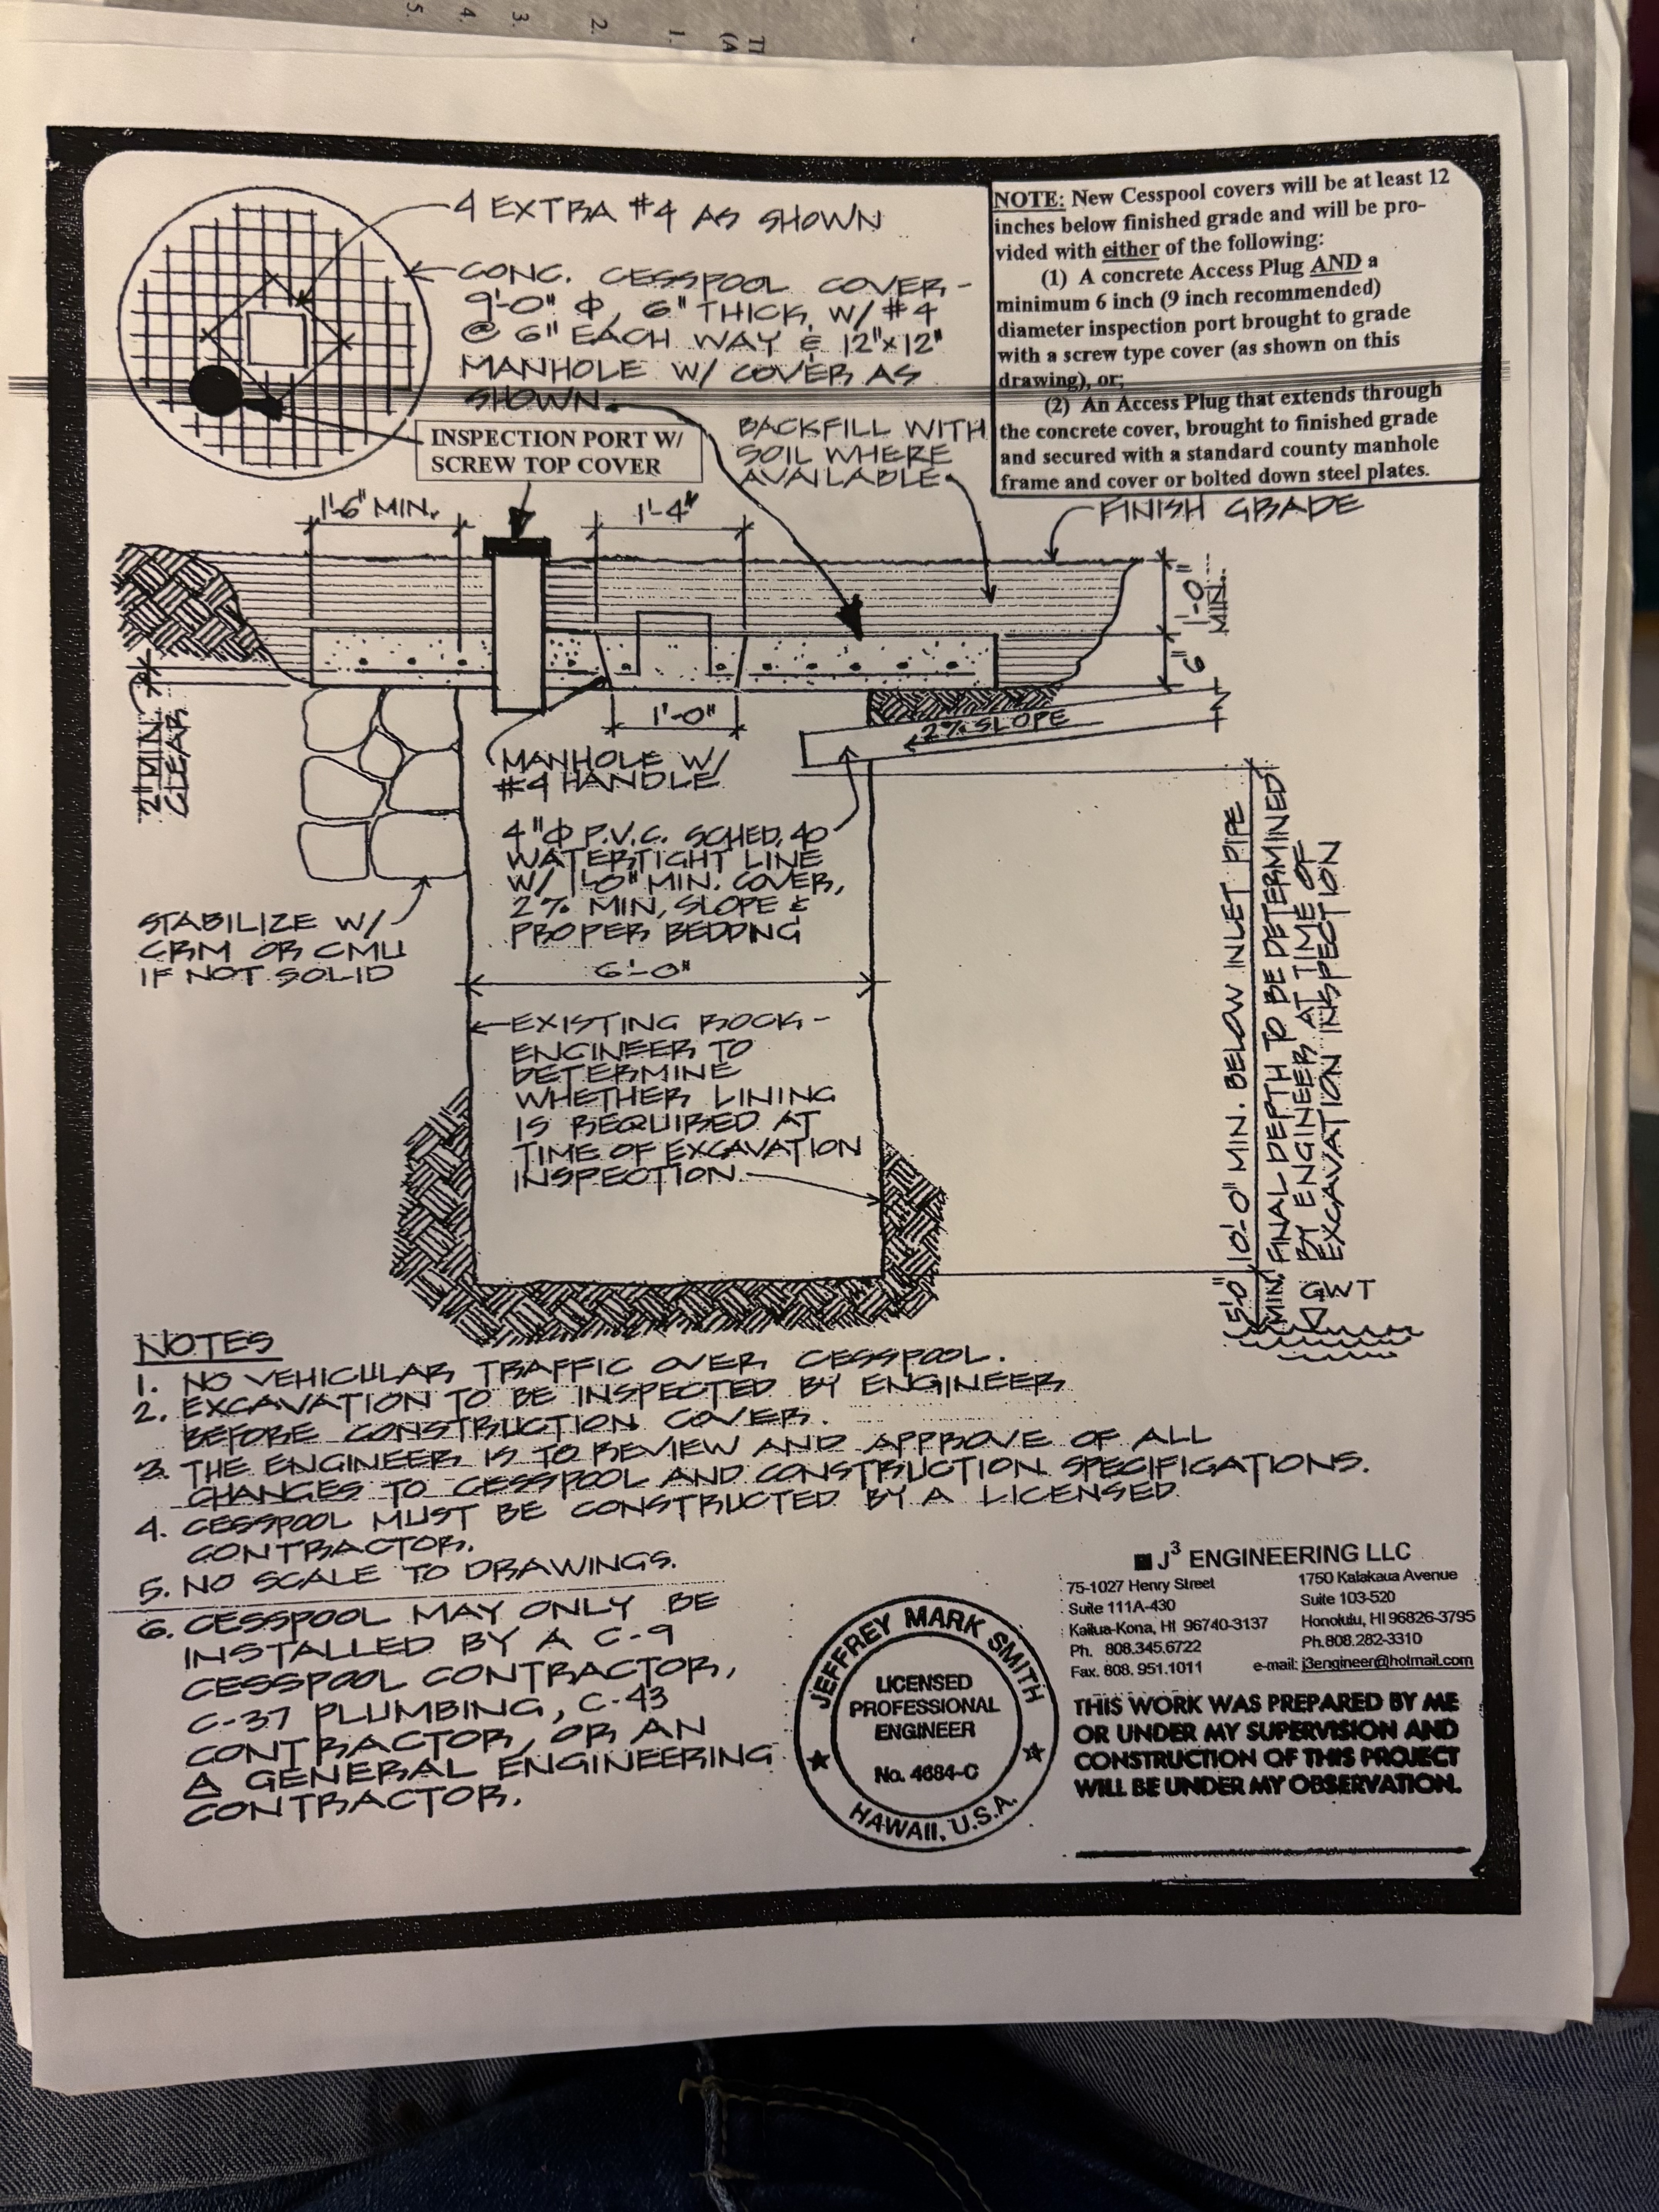 5.
4.
3.
2.
1.
4 EXTRA #4 AS SHOWN
CONC. CESSPOOL COVER -
9'-0" Φ, 6" THICK, W/ #4
@ 6" EACH WAY & 12"x12"
MANHOLE W/ COVER AS
SHOWN.
NOTE: New Cesspool covers will be at least 12
inches below finished grade and will be pro-
vided with either of the following:
(1) A concrete Access Plug AND a
minimum 6 inch (9 inch recommended)
diameter inspection port brought to grade
with a screw type cover (as shown on this
drawing), or;
(2) An Access Plug that extends through
the concrete cover, brought to finished grade
and secured with a standard county manhole
frame and cover or bolted down steel plates.
INSPECTION PORT W/
SCREW TOP COVER
BACKFILL WITH
SOIL WHERE
AVAILABLE
FINISH GRADE
1'-6" MIN.
1'-4"
1'-0"
MIN.
6"
2" MIN.
CLEAR
1'-0"
2% SLOPE
MANHOLE W/
#4 HANDLE
4"Φ P.V.C. SCHED. 40
WATERTIGHT LINE
W/ 1'-0" MIN. COVER,
2% MIN. SLOPE &
PROPER BEDDING
STABILIZE W/
CRM OR CMU
IF NOT SOLID
6'-0"
EXISTING ROCK -
ENGINEER TO
DETERMINE
WHETHER LINING
IS REQUIRED AT
TIME OF EXCAVATION
INSPECTION.
10'-0" MIN. BELOW INLET PIPE
FINAL DEPTH TO BE DETERMINED
BY ENGINEER AT TIME OF
EXCAVATION INSPECTION
5'-0"
MIN.
GWT
NOTES
1. NO VEHICULAR TRAFFIC OVER CESSPOOL.
2. EXCAVATION TO BE INSPECTED BY ENGINEER
BEFORE CONSTRUCTION COVER.
3. THE ENGINEER IS TO REVIEW AND APPROVE OF ALL
CHANGES TO CESSPOOL AND CONSTRUCTION SPECIFICATIONS.
4. CESSPOOL MUST BE CONSTRUCTED BY A LICENSED
CONTRACTOR.
5. NO SCALE TO DRAWINGS.
6. CESSPOOL MAY ONLY BE
INSTALLED BY A C-9
CESSPOOL CONTRACTOR,
C-37 PLUMBING, C-43
CONTRACTOR, OR AN
A GENERAL ENGINEERING
CONTRACTOR.
JEFFREY MARK SMITH
LICENSED
PROFESSIONAL
ENGINEER
No. 4684-C
HAWAII, U.S.A.
J³ ENGINEERING LLC
75-1027 Henry Street
Suite 111A-430
Kailua-Kona, HI 96740-3137
Ph. 808.345.6722
Fax. 808. 951.1011
1750 Kalakaua Avenue
Suite 103-520
Honolulu, HI 96826-3795
Ph.808.282-3310
e-mail: j3engineer@hotmail.com
THIS WORK WAS PREPARED BY ME
OR UNDER MY SUPERVISION AND
CONSTRUCTION OF THIS PROJECT
WILL BE UNDER MY OBSERVATION.